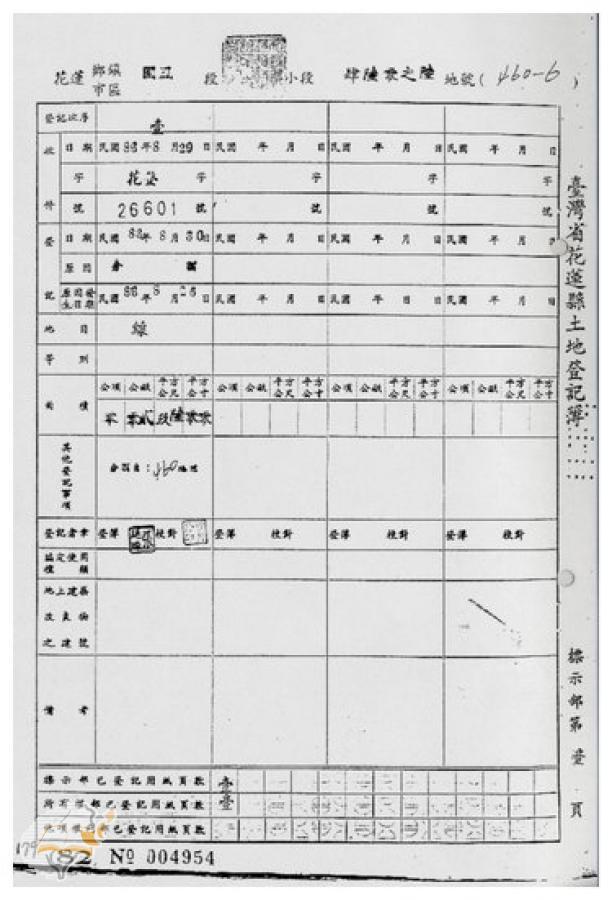 花蓮 鄉鎮市區 國立 段 小段 肆陸零之陸 地號(460-6)
登記次序 壹
收件 日期 民國86年8月29日 民國 年 月 日 民國 年 月 日 民國 年 月 日
字 花登 字 字 字 字
號 26601 號 號 號 號
登記 日期 民國86年8月30日 民國 年 月 日 民國 年 月 日 民國 年 月 日
原因 分割
原因發生日期 民國86年8月26日 民國 年 月 日 民國 年 月 日 民國 年 月 日
地目
等則
面積 公頃 公畝 平方公尺 平方公寸 公頃 公畝 平方公尺 平方公寸 公頃 公畝 平方公尺 平方公寸 公頃 公畝 平方公尺 平方公寸
其他登記事項 分割自:460地號
登記者章 登簿 校對 登簿 校對 登簿 校對 登簿 校對
編定使用種類
地上建築改良物之建號
備考
標示部已登記用紙頁數 壹
所有權部已登記用紙頁數 壹
他項權利部已登記用紙頁數
179
82 No 004954
臺灣省花蓮縣土地登記簿
標示部第壹頁